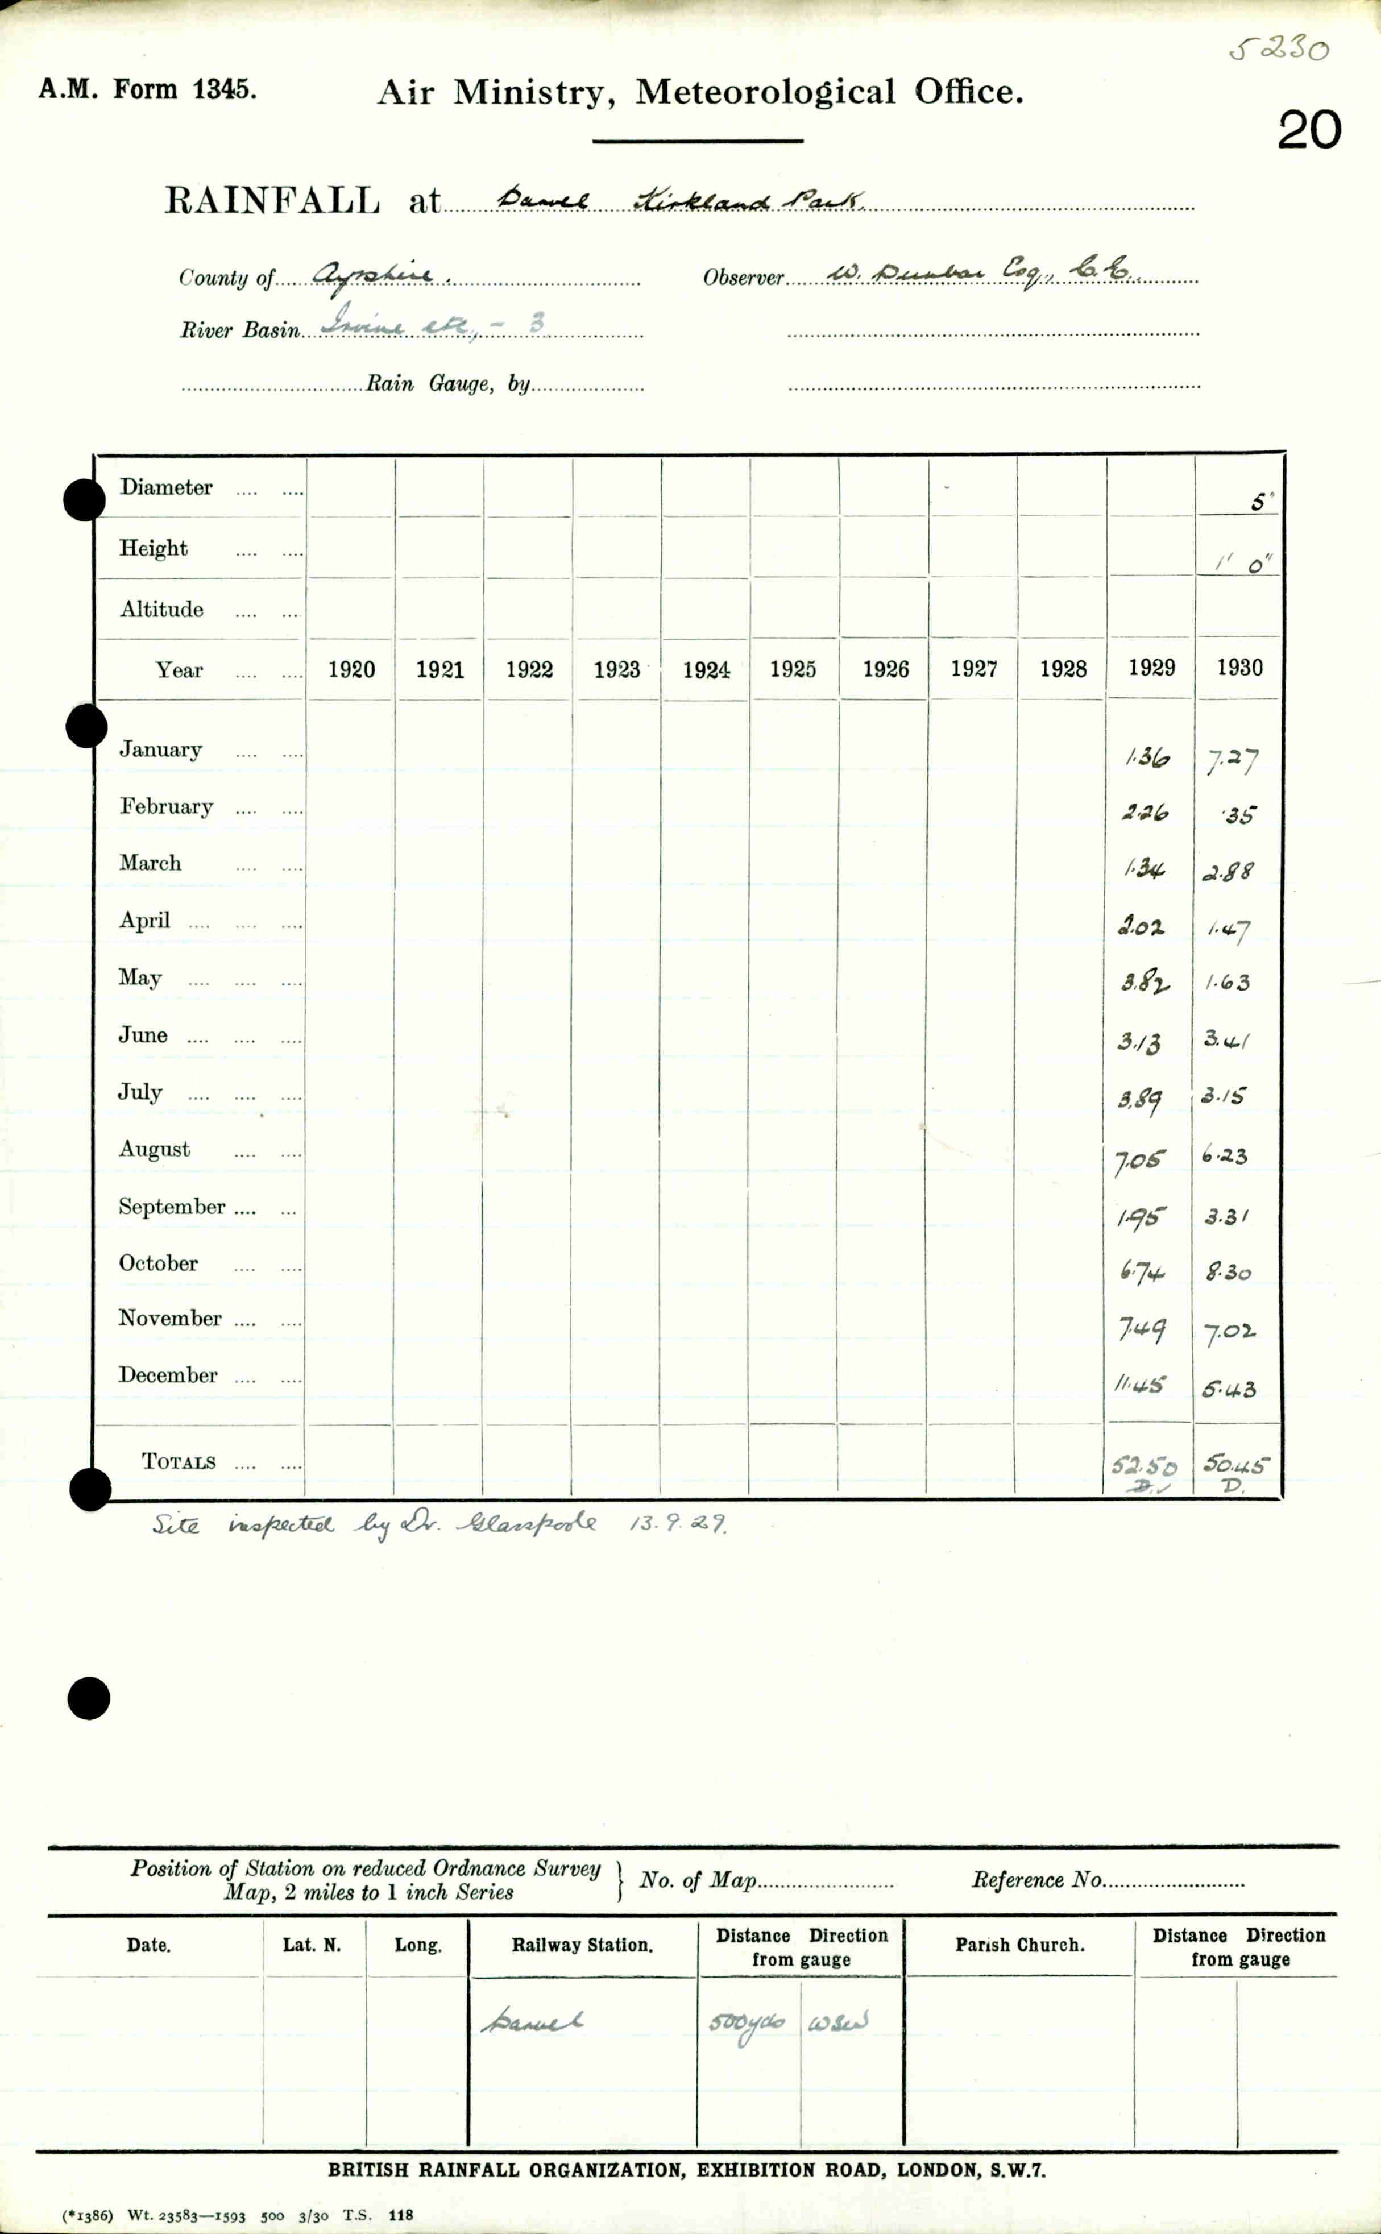 5230
A.M. Form 1345. Air Ministry, Meteorological Office.
20
RAINFALL at Darvel Kirkland Park
County of Ayrshire. Observer W. Dunbar Esq., C.E.
River Basin Irvine etc, - 3
Rain Gauge, by
Diameter 5"
Height 1' 0"
Altitude
Year 1920 1921 1922 1923 1924 1925 1926 1927 1928 1929 1930
January 1.36 7.27
February 2.26 .35
March 1.34 2.88
April 2.02 1.47
May 3.82 1.63
June 3.13 3.41
July 3.89 3.15
August 7.05 6.23
September 1.95 3.31
October 6.74 8.30
November 7.49 7.02
December 11.45 5.43
TOTALS 52.50 50.45
D.✓ D.
Site inspected by Dr. Glasspoole 13.9.29.
Position of Station on reduced Ordnance Survey
Map, 2 miles to 1 inch Series } No. of Map Reference No.
Date. Lat. N. Long. Railway Station. Distance Direction from gauge Parish Church. Distance Direction from gauge
Darvel 500yds WSW
BRITISH RAINFALL ORGANIZATION, EXHIBITION ROAD, LONDON, S.W.7.
(*1386) Wt. 23583—1593 500 3/30 T.S. 118